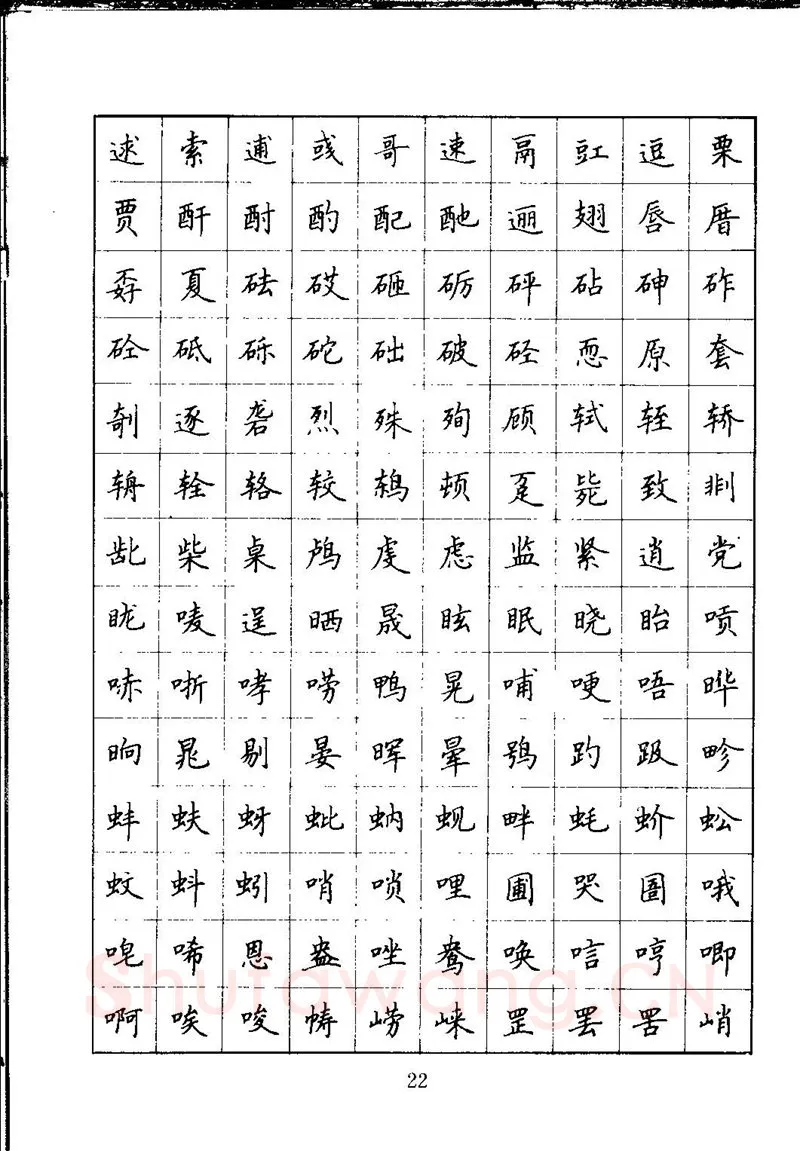 逑索逋彧哥速鬲豇逗栗
贾酐酎酌配酏逦翅唇厝
孬夏砝砹砸砺砰砧砷砟
砼砥砾砣础破硁恧原套
剞逐砻烈殊殉顾轼轾轿
辀辁辂较鸫顿趸毙致剕
龀柴桌鸬虔虑监紧逍党
眬唛逞晒晟眩眠晓眙唝
哧哳哮唠鸭晃哺哽唔晔
晌晁剔晏晖晕鸮趵趿畛
蚌蚨蚜蚍蚋蚬畔蚝蚧蚣
蚊蚪蚓哨唢哩圃哭圄哦
唣唏恩盎唑鸯唤唁哼唧
Shufawang.CN
啊唉唆帱崂崃罡罢罟峭
22